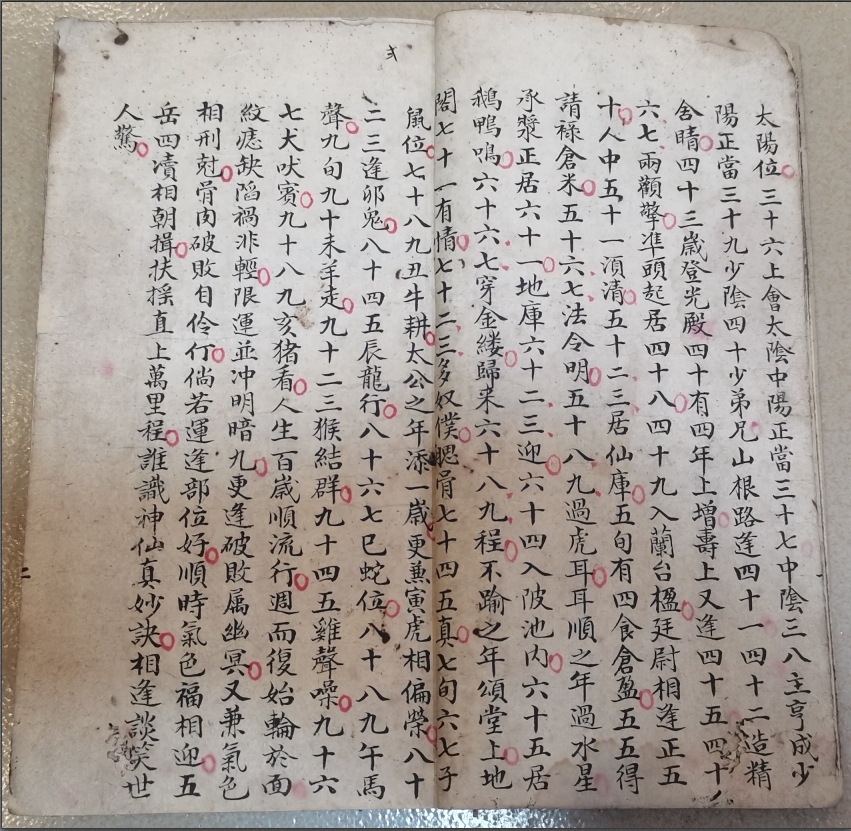 弍
太陽位三十六上會太陰中陽正當三十七中陰三八主亨成少
陽正當三十九少陰四十少弟兄山根路逢四十一四十二造精
舍晴四十三歲登光殿四十有四年上增壽上又逢四十五四十
六七兩顴擎準頭起居四十八四十九入蘭台楹廷尉相逢正五
十人中五十一湏清五十二三居仙庫五旬有四食倉盈五五得
請祿倉米五十六七法令明五十八九過虎耳耳順之年過水星
承漿正居六十一地庫六十二三迎六十四入陂池內六十五居
鵝鴨鳴六十六七穿金縷歸来六十八九程不踰之年頌堂上地
閣七十一有情七十二三多奴僕腮骨七十四五真七旬六七子
鼠位七十八九丑牛耕太公之年添一歲更兼寅虎相偏榮八十
二三逢卯鬼八十四五辰龍行八十六七巳蛇位八十八九午馬
聲九旬九十未羊走九十二三猴結群九十四五雞聲噪九十六
七犬吠賓九十八九亥猪看人生百歲順流行週而復始輪於面
紋痣缺陷禍非輕限運並冲明暗九更逢破敗属幽冥又兼氣色
相刑尅骨肉破敗自伶仃倘若運逢部位好順時氣色福相迎五
岳四瀆相朝揖扶搖直上萬里程誰識神仙真妙訣相逢談笑世
人驚